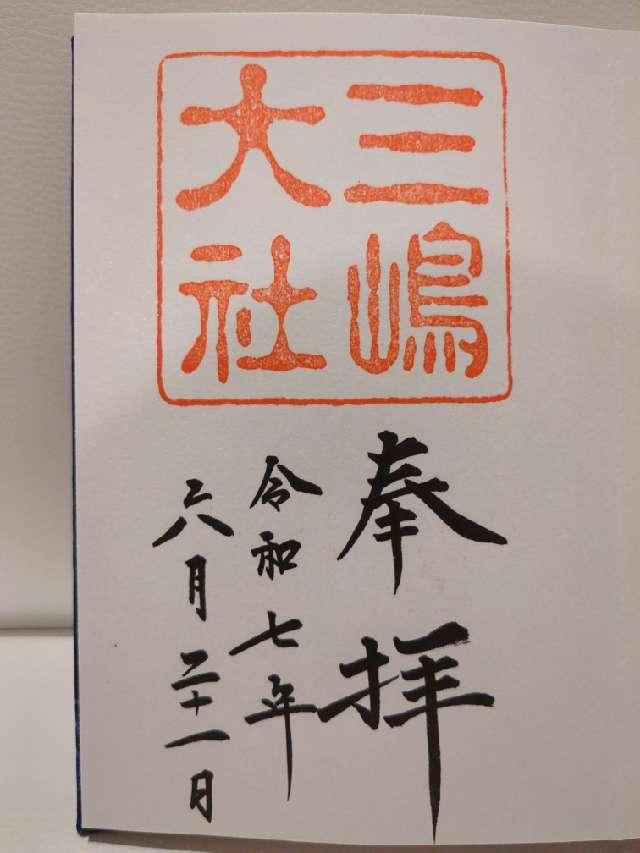 三嶋
大社
奉拝
令和七年
六月二十一日